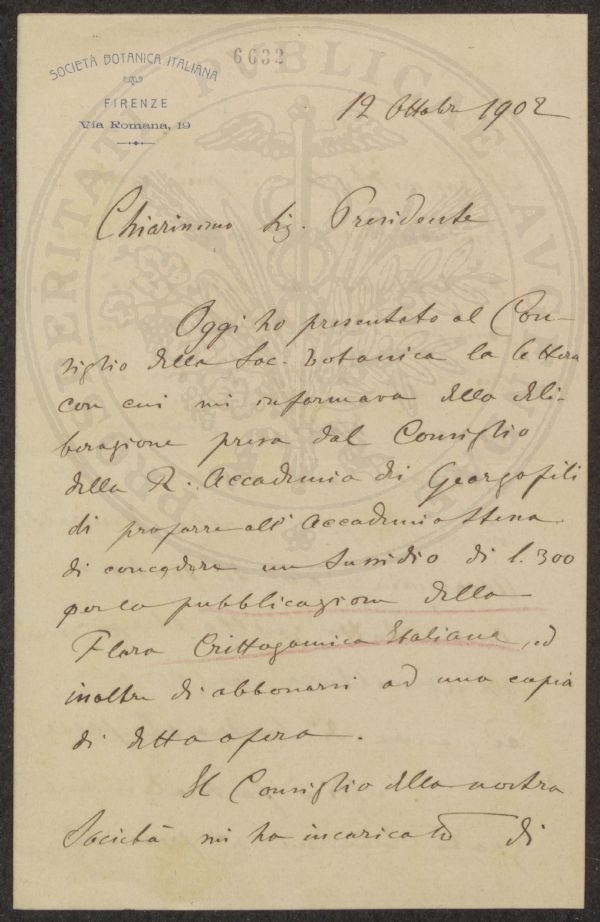 6632
SOCIETÀ BOTANICA ITALIANA
FIRENZE
Via Romana, 19
12 Ottobre 1902
Chiarissimo Sig. Presidente
Oggi ho presentato al Con-
siglio della Soc. Botanica la lettera
con cui mi informava della deli-
berazione presa dal Consiglio
della R. Accademia di Georgofili
di proporre all'Accademia stessa
di concedere un sussidio di l. 300
per la pubblicazione della
Flora Crittogamica Italiana, ed
inoltre di abbonarsi ad una copia
di detta opera.
Il Consiglio della nostra
Società mi ha incaricato di